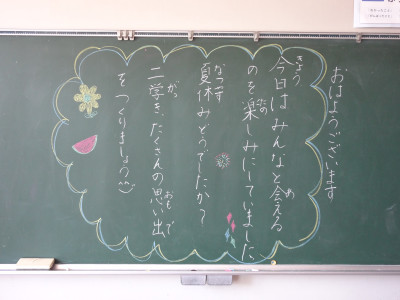 おはようございます
今日はみんなと会える
のを楽しみにしていました
夏休みどうでしたか?
二学き、たくさんの思い出
をつくりましょう
きょう
あ
たの
なつやす
がっ
おも
で